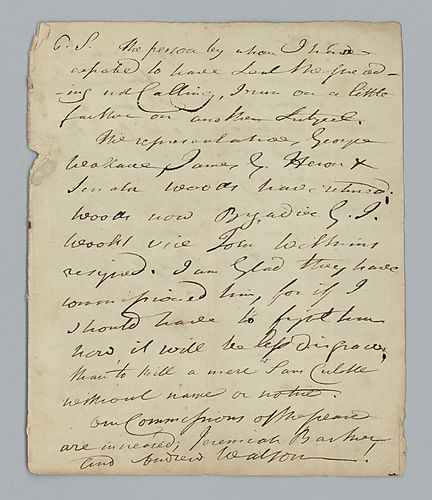 P.S. The person by whom I had
expected to have sent the preced-
-ing not calling, I run on a little
farther on another subject.
The representatives, George
Wallace, James G. Heron &
Senator Woods have returned;
Woods now Brigadier G. I.
Woods vice John Wilkins
resigned. I am glad they have
commissioned him, for if I
should have to fight him
now, it will be less disgrace,
than to kill a mere Sam
without name or notice.
our Commissions of the peace
are increased, Jeremiah Barker,
and Andrew Watson.